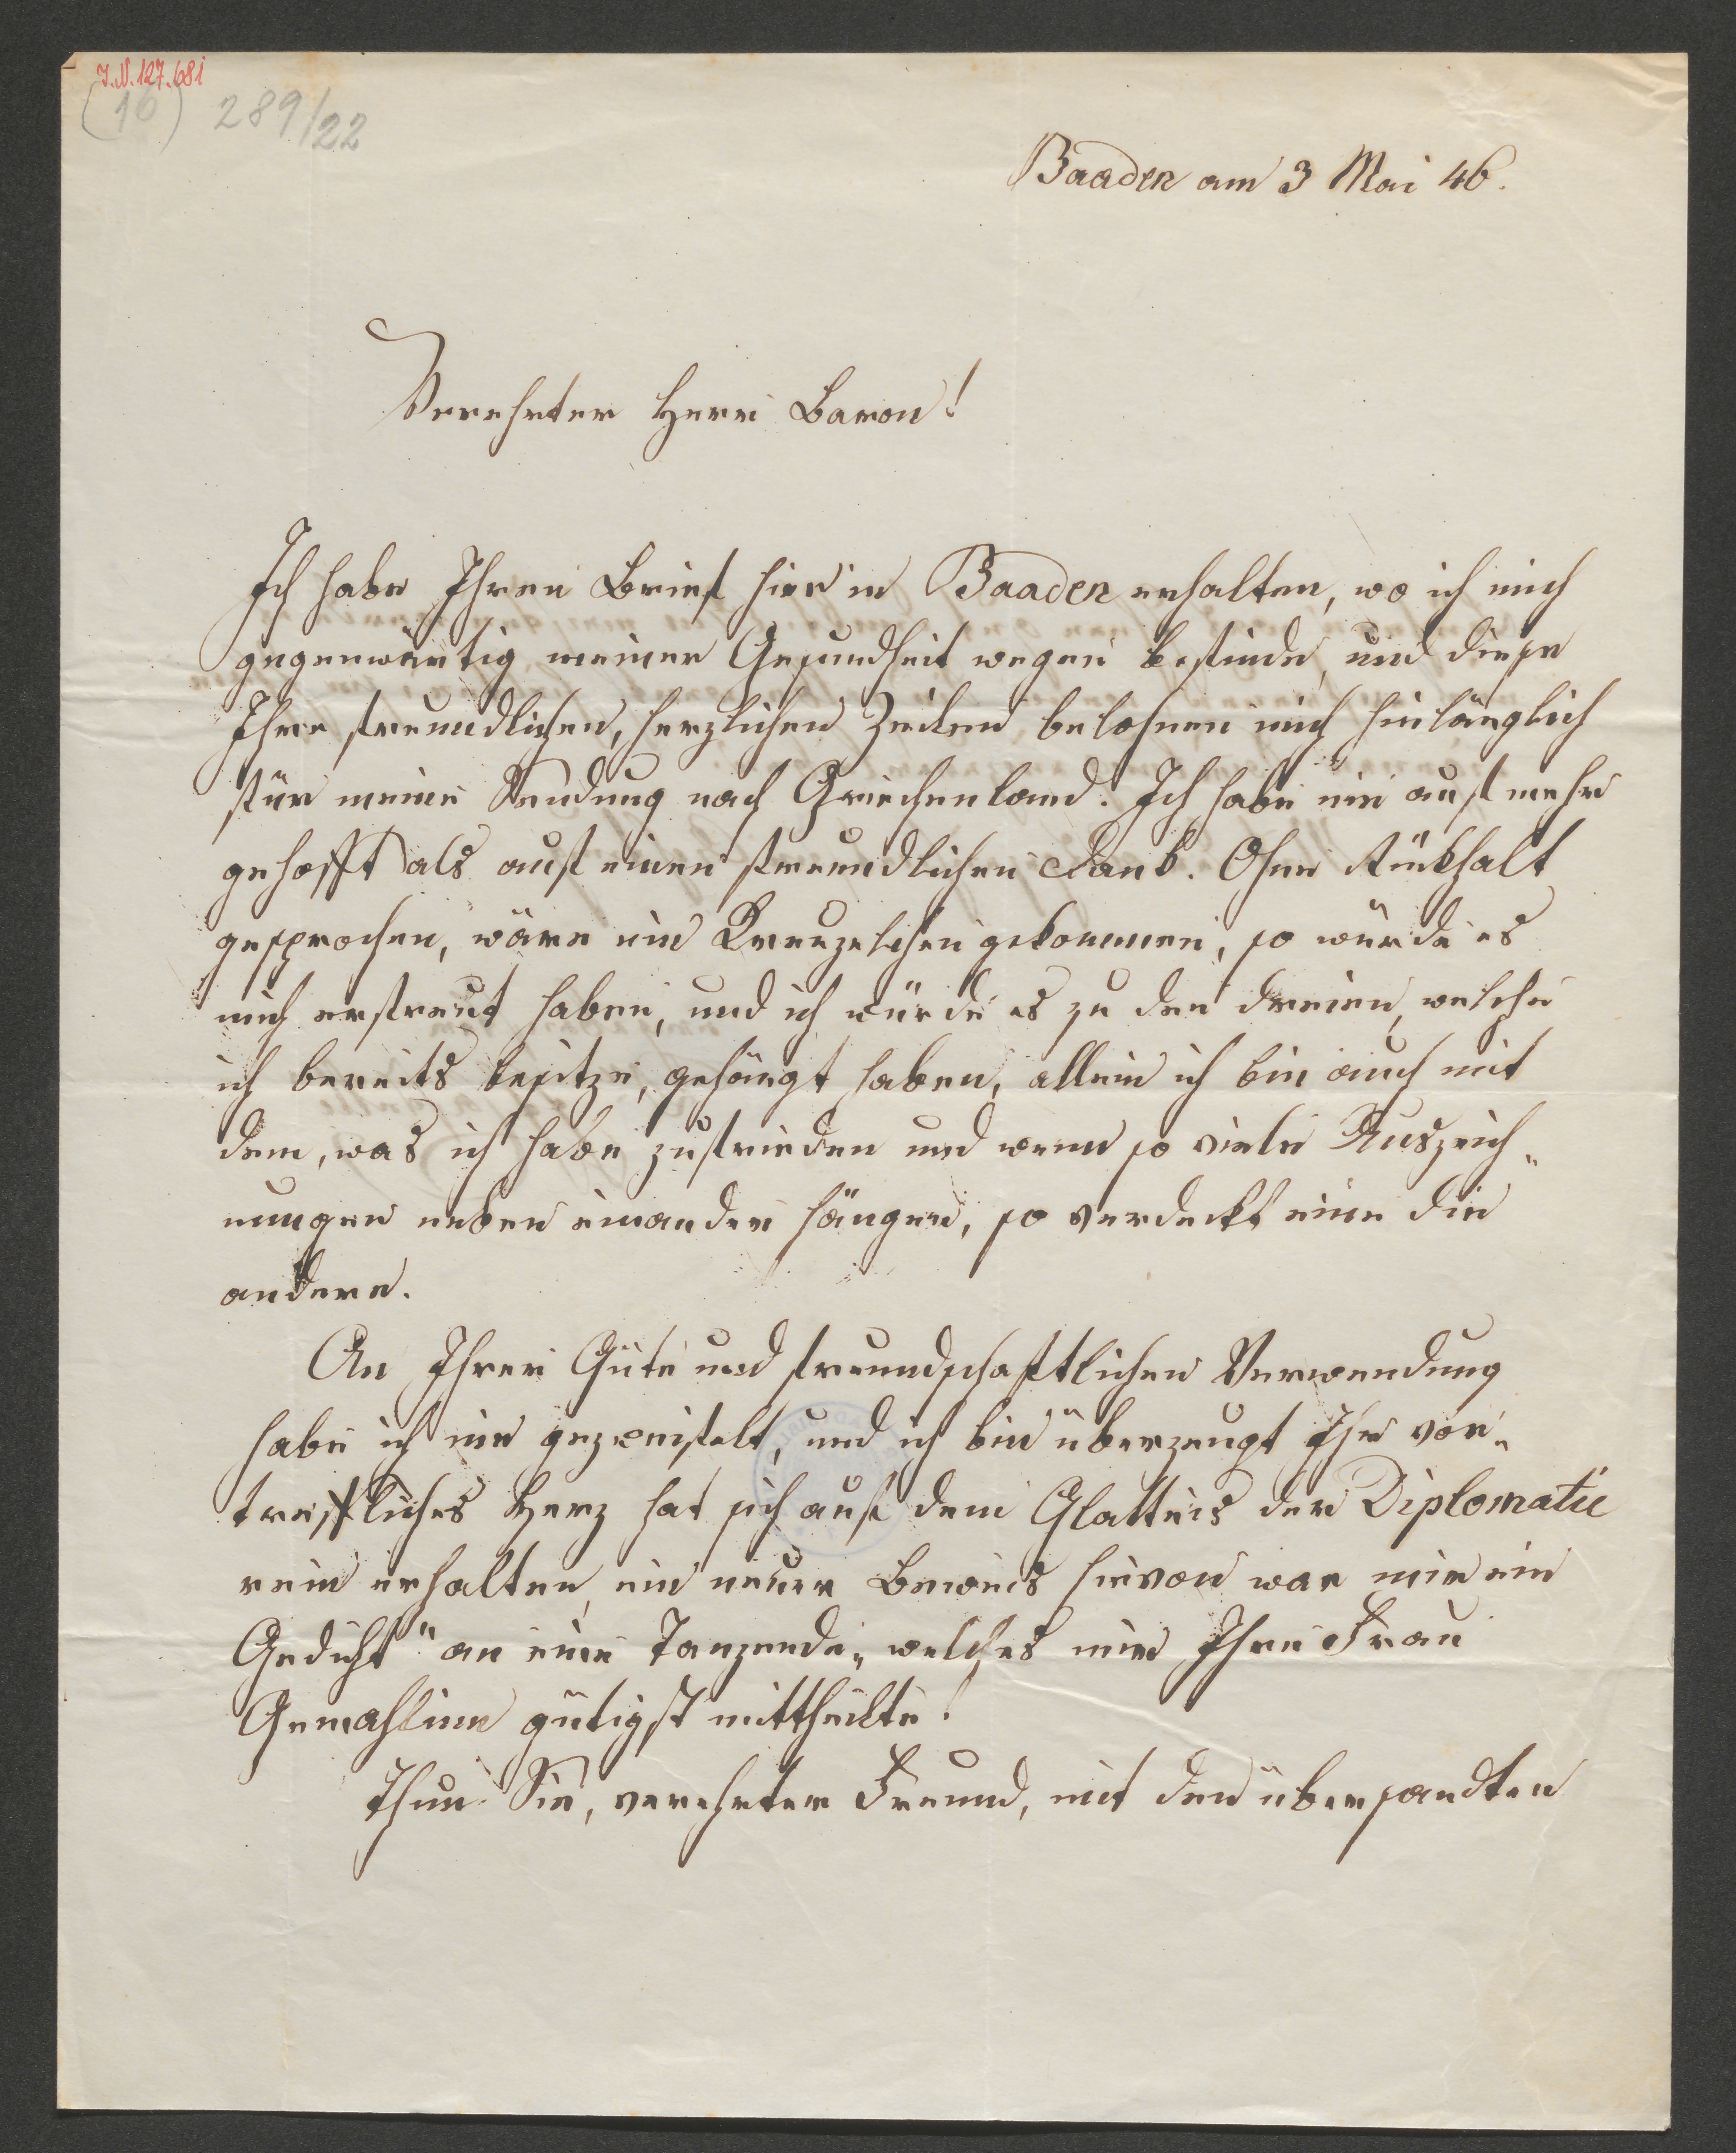 I.N. 127.681
(16) 289/22
Baaden am 3 Mai 46.
Verehrter Herr Baron!
Ich habe Ihren Brief hier in Baaden erhalten, wo ich mich
gegenwärtig meiner Gesundheit wegen befinde, und diese
Ihre freundlichen, herzlichen Zeilen belohnen mich hinlänglich
für meine Sendung nach Griechenland. Ich habe nie auf mehr
gehofft als auf einen freundlichen Dank. Ohne Rückhalt
gesprochen, wäre ein Kreuzelchen gekommen, so würde es
mich erfreut haben, und ich würde es zu den dreien, welche
ich bereits besitze, gehängt haben, allein ich bin auch mit
dem, was ich habe zufrieden und wenn so viele Auszeich„
nungen neben einander hängen, so verdeckt eine die
andere.
An Ihrer Güte und freundschaftlichen Verwendung
habe ich nie gezweifelt, und ich bin überzeugt Ihr vor„
treffliches Herz hat sich auf dem Glatteis der Diplomatie
rein erhalten, ein neuer Beweis hievon war mir ein
Gedicht "an eine Tanzende„ welches mir Ihre Frau
Gemahlinn gütigst mittheilte!
Thun Sie, verehrter Freund, mit den übersandten